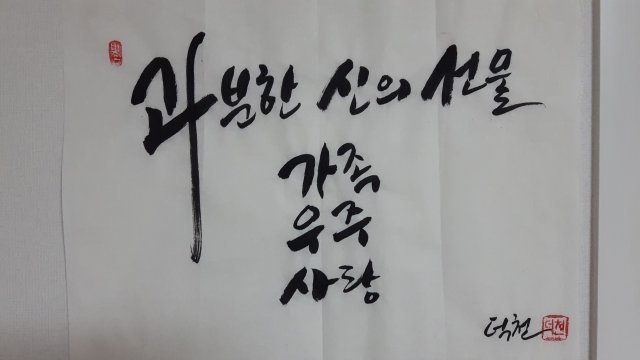 과분한 신의 선물
가족
우주
사랑
덕천
덕천